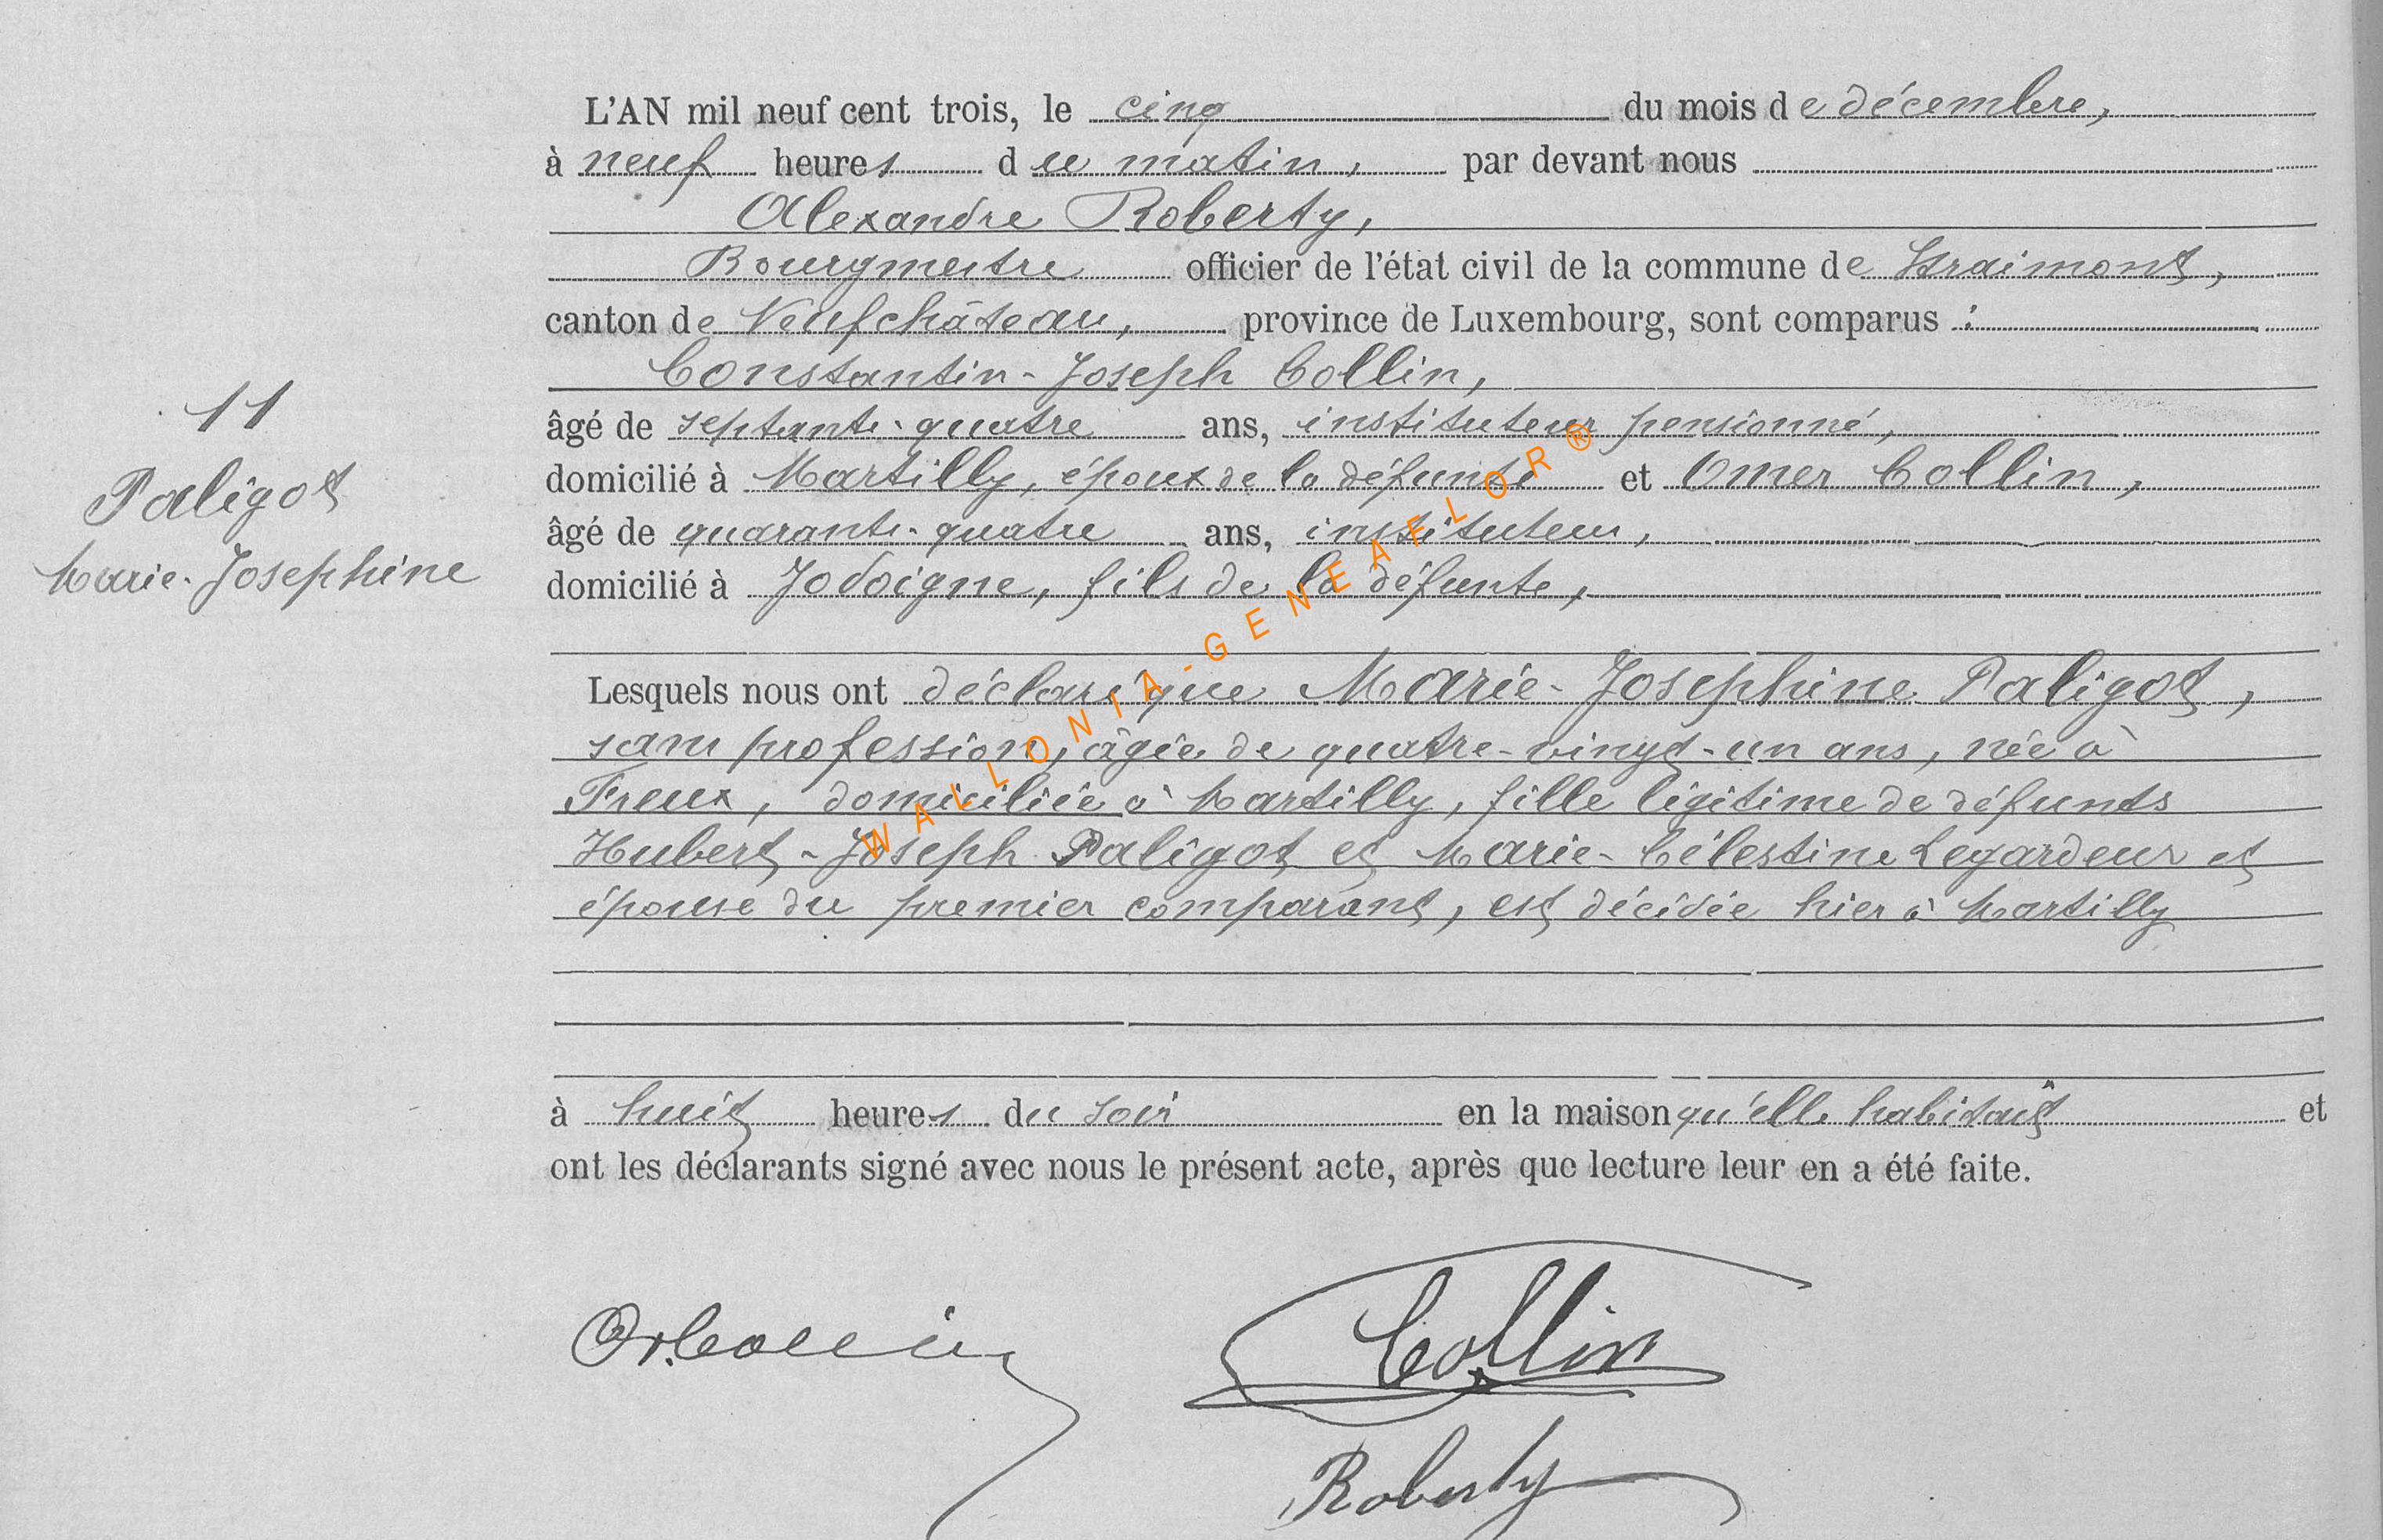 L'AN mil neuf cent trois, le cinq du mois de décembre,
à neuf heures du matin, par devant nous
Alexandre Roberty,
Bourgmestre officier de l'état civil de la commune de Straimont,
canton de Neufchâteau, province de Luxembourg, sont comparus :
Constantin-Joseph Collin,
âgé de septante-quatre ans, instituteur pensionné,
domicilié à Martilly, époux de la défunte et Omer Collin,
âgé de quarante-quatre ans, instituteur,
domicilié à Jodoigne, fils de la défunte,
11
Paligot
Marie-Josephine
Lesquels nous ont déclaré que Marie-Josephine Paligot,
sans profession, âgée de quatre-vingt-un ans, née à
Freux, domiciliée à Martilly, fille légitime de défunts
Hubert-Joseph Paligot et Marie-Célestine Legardeur et
épouse du premier comparant, est décédée hier à Martilly
à huit heures du soir en la maison qu'elle habitait et
ont les déclarants signé avec nous le présent acte, après que lecture leur en a été faite.
Or. Collin
Collin
Roberty
WALLONIA-GENEAFLOR®